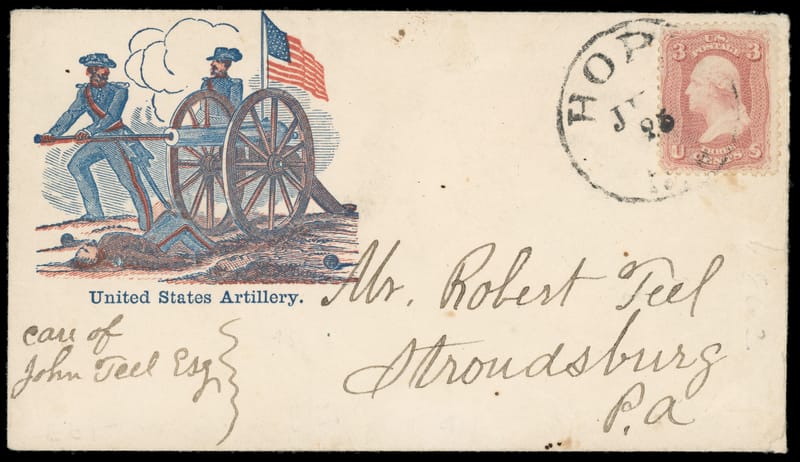 HOP
JU
25
3 U.S. 3
POSTAGE
U THREE S
CENTS
United States Artillery.
Mr. Robert Teel
Stroudsburg
P.a
care of
John Teel Esq